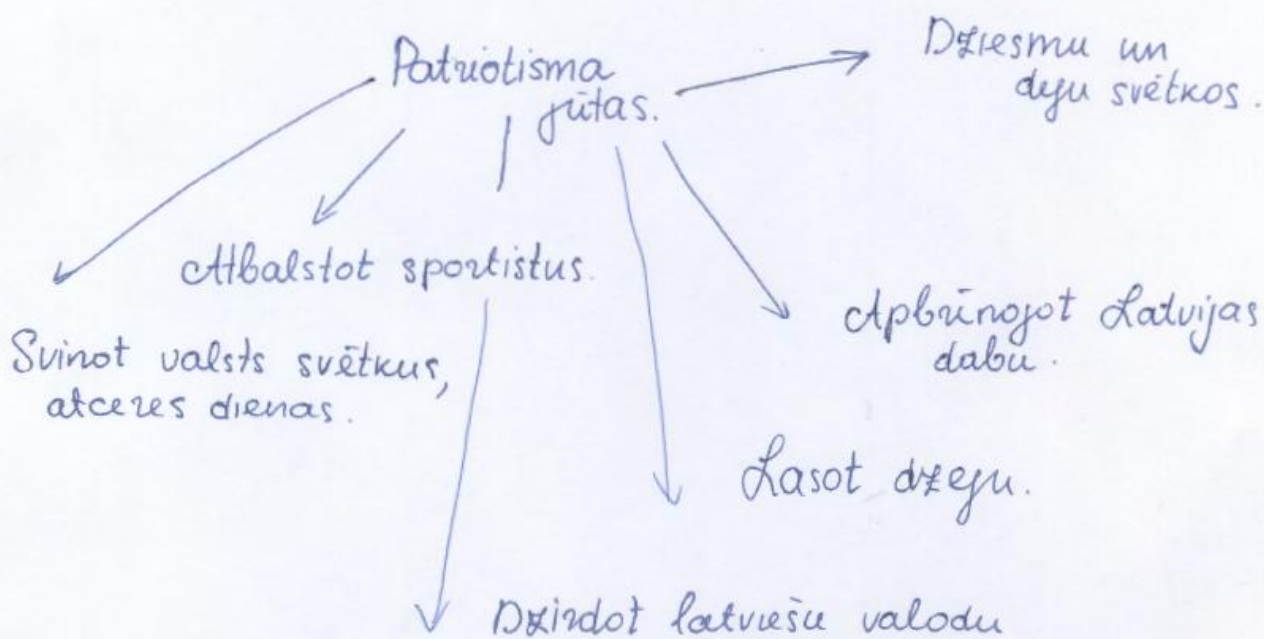 Patriotisma
jūtas.
Dziesmu un
deju svētkos.
Atbalstot sportistus.
Svinot valsts svētkus,
atceres dienas.
Apbrīnojot Latvijas
dabu.
Lasot dzeju.
Dzirdot latviešu valodu